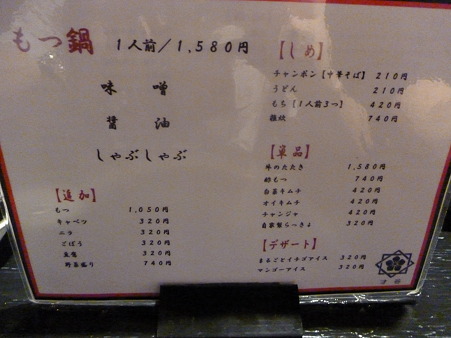 もつ鍋 1人前/1,580円
味噌
醤油
しゃぶしゃぶ
【追加】
もつ 1,050円
キャベツ 320円
ニラ 320円
ごぼう 320円
豆腐 320円
野菜盛り 740円
【しめ】
チャンポン【中華そば】 210円
うどん 210円
もち【1人前3つ】 420円
雑炊 740円
【単品】
牛のたたき 1,580円
酢もつ 740円
白菜キムチ 420円
オイキムチ 420円
チャンジャ 420円
自家製らっきょ 320円
【デザート】
まるごとイチゴアイス 320円
マンゴーアイス 320円